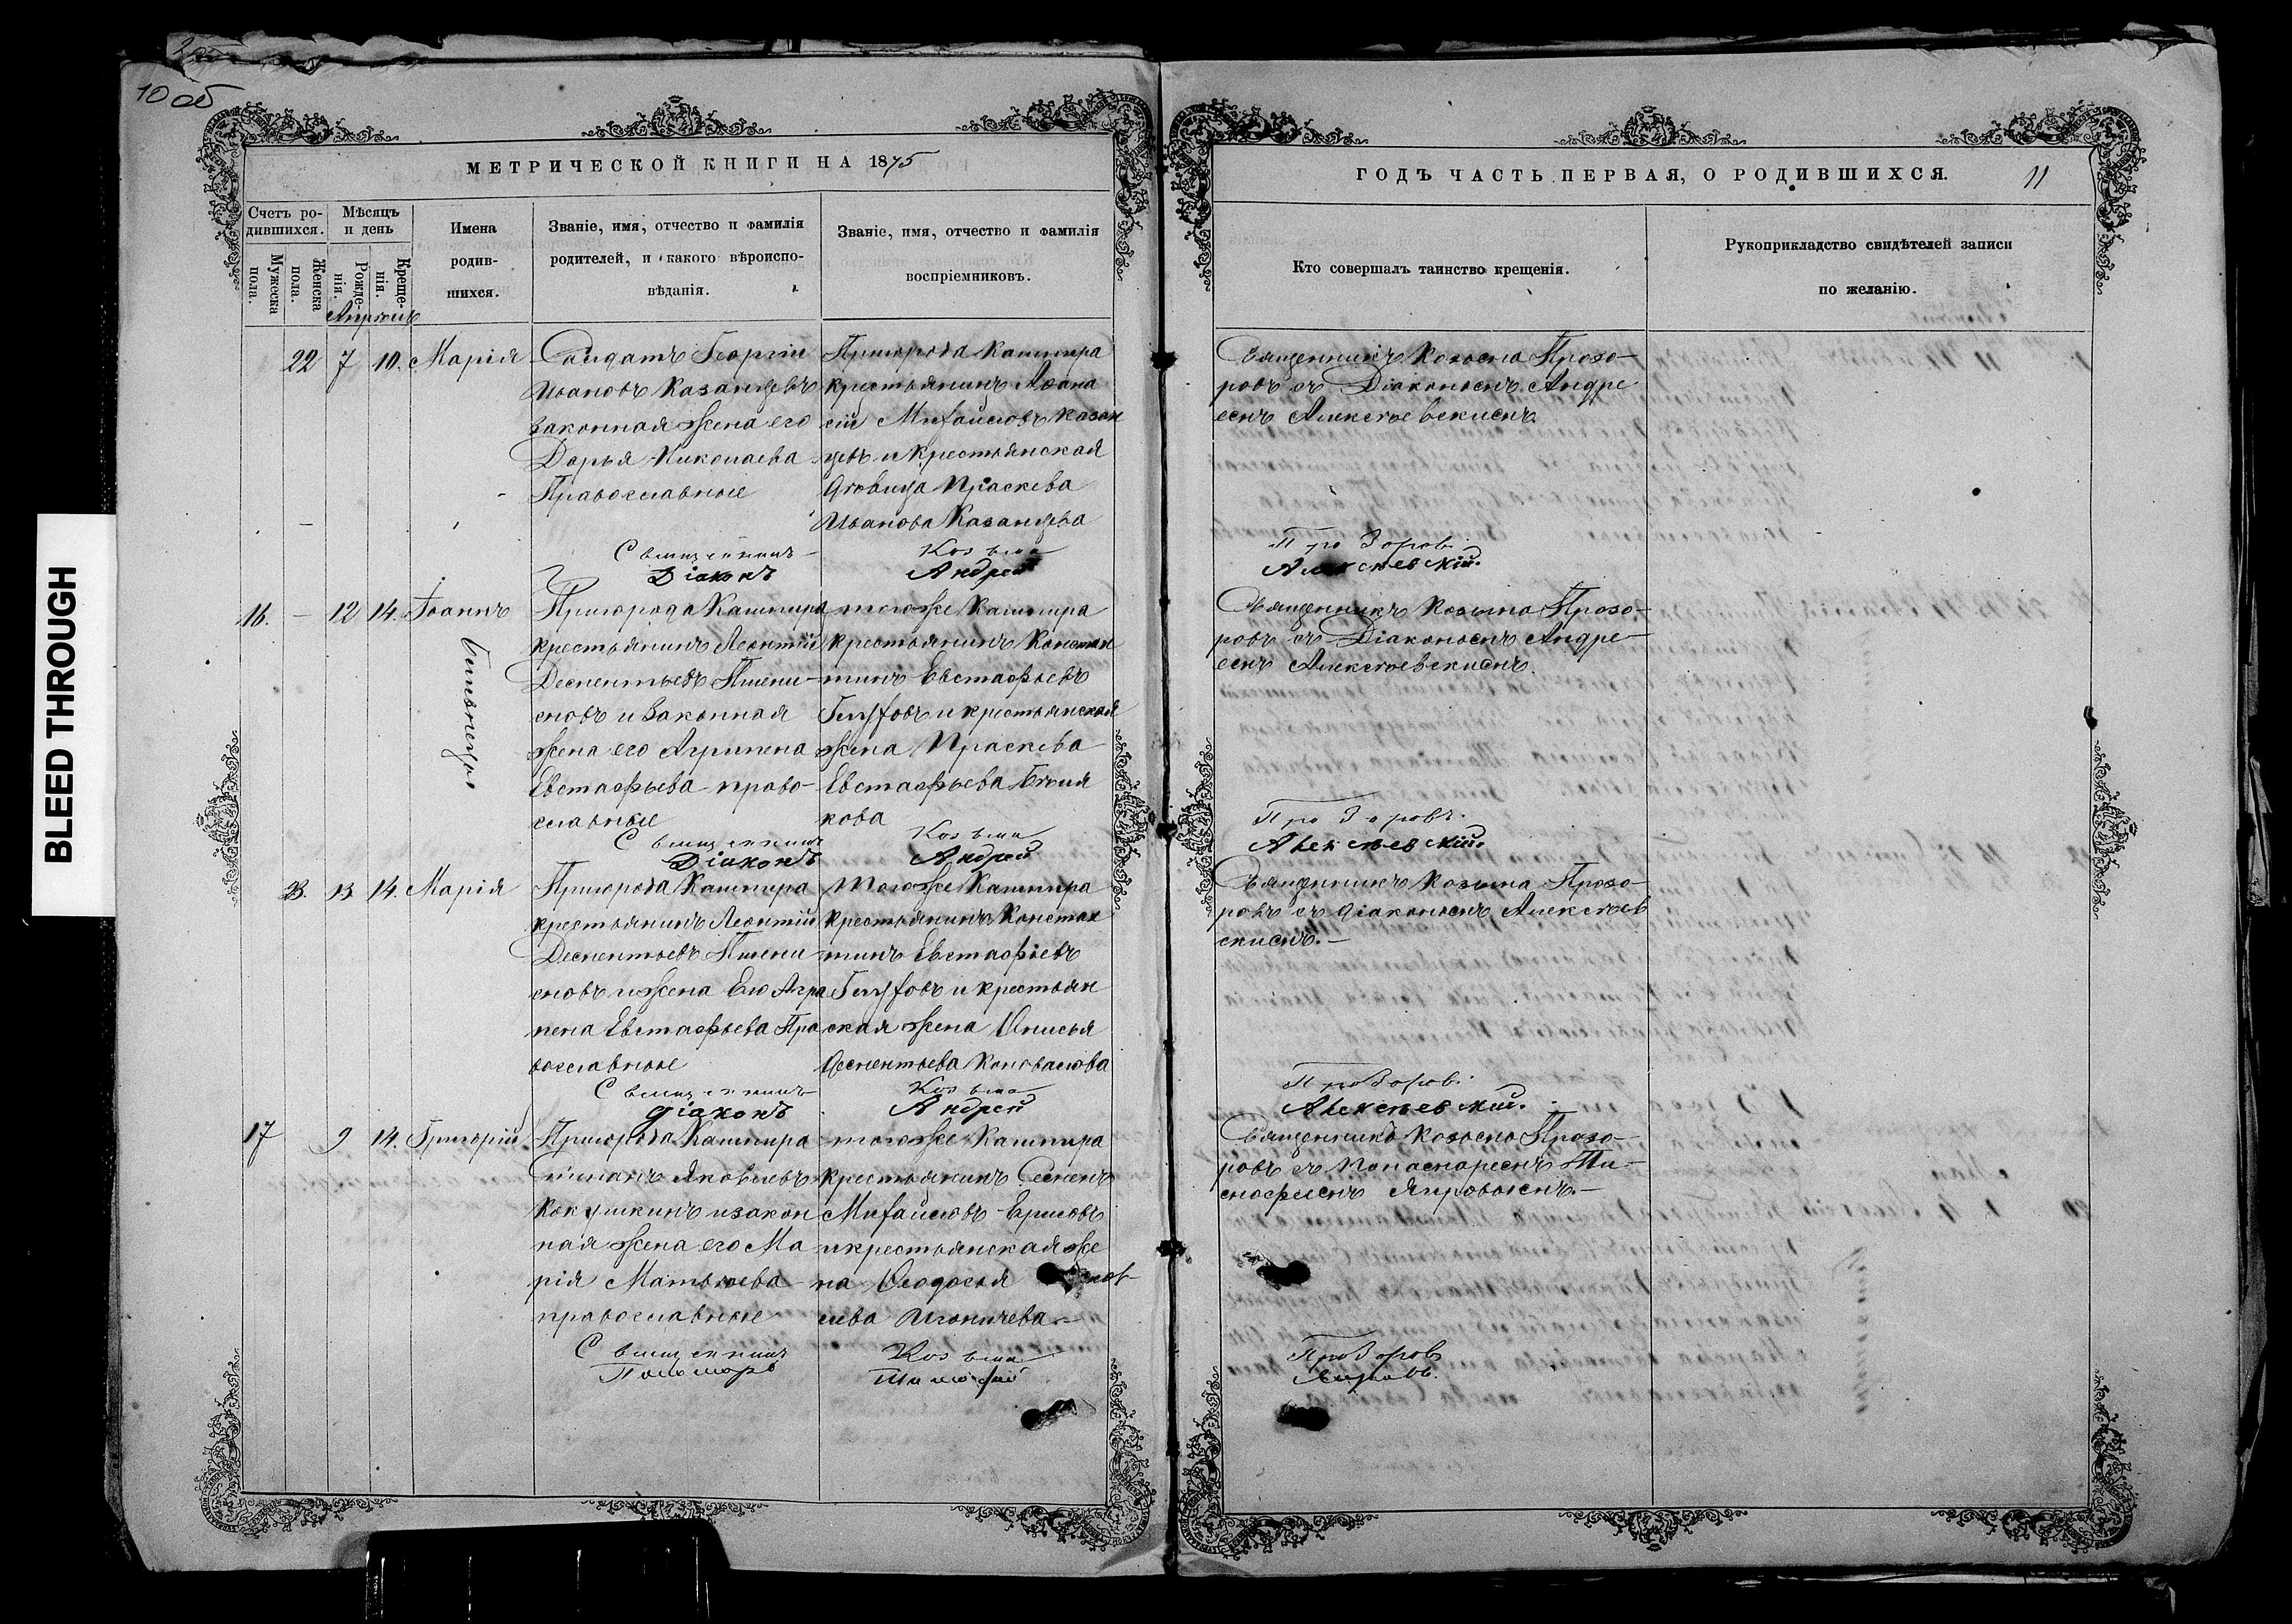 10 об
МЕТРИЧЕСКОЙ КНИГИ НА 1875
Счетъ ро-
дившихся.
Мужеска
пола.
Женска
пола.
Мѣсяцъ
и день
Рожде-
нія.
Креще-
нія.
Апрѣль
Имена
родив-
шихся.
Званіе, имя, отчество и фамилія
родителей, и какого вѣроиспо-
вѣданія.
Званіе, имя, отчество и фамилія
воспріемниковъ.
22 7 10. Марія
Солдатъ Георгій
Ивановъ Казанцевъ
законная жена его
Дарья Николаева
Православные
Пригорода Кашпира
крестьянинъ Афана
сій Михайловъ Казан
цевъ и крестьянская
дѣвица Праскева
Иванова Казанцева
Священникъ Козьма
Діаконъ Андрей
16. — 12 14. Іоаннъ
Близнецы
Пригорода Кашпира
крестьянинъ Леонтій
Дементьевъ
сновъ и законная
жена его Агрипена
Евстафьева право-
славные
тогоже Кашпира
крестьянинъ Констан
тинъ Евстафьевъ
и крестьянская
жена Праскева
Евстафьева
кова
Священникъ Козьма
Діаконъ Андрей
23. 13 14. Марія
Пригорода Кашпира
крестьянинъ Леонтій
Дементьевъ
сновъ и жена Его Агри
пена Евстафьева Пра
вославные
тогоже Кашпира
крестьянинъ Констан
тинъ Евстафьевъ
и крестьян
ская жена Анисья
Дементьева Коновалова
Священникъ Козьма
діаконъ Андрей
17 9 14. Григорій
Пригорода Кашпира
Яковлевъ
Кокушкинъ и закон
ная жена его Ма
рія Матвѣева
православные
тогоже Кашпира
крестьянинъ Семенъ
Михайловъ
и крестьянская же
на Феодосья
лева
Священникъ Козьма
Пономарь Тимофей
ГОДЪ ЧАСТЬ ПЕРВАЯ, О РОДИВШИХСЯ. 11
Кто совершалъ таинство крещенія.
Рукоприкладство свидѣтелей записи
по желанію.
Священникъ Козьма Прозо-
ровъ съ Діакономъ Андре
емъ Алексѣевскимъ.
Прозоровъ
Алексѣевскій.
Священникъ Козьма Прозо-
ровъ съ Діакономъ Андре-
емъ Алексѣевскимъ.
Прозоровъ.
Алексѣевскій.
Священникъ Козьма Прозо-
ровъ съ діакономъ Алексѣев
скимъ.—
Прозоровъ.
Алексѣевскій.
Священникъ Козьма Прозо-
ровъ съ Понамаремъ Ти-
мофеемъ
Прозоровъ
BLEED THROUGH